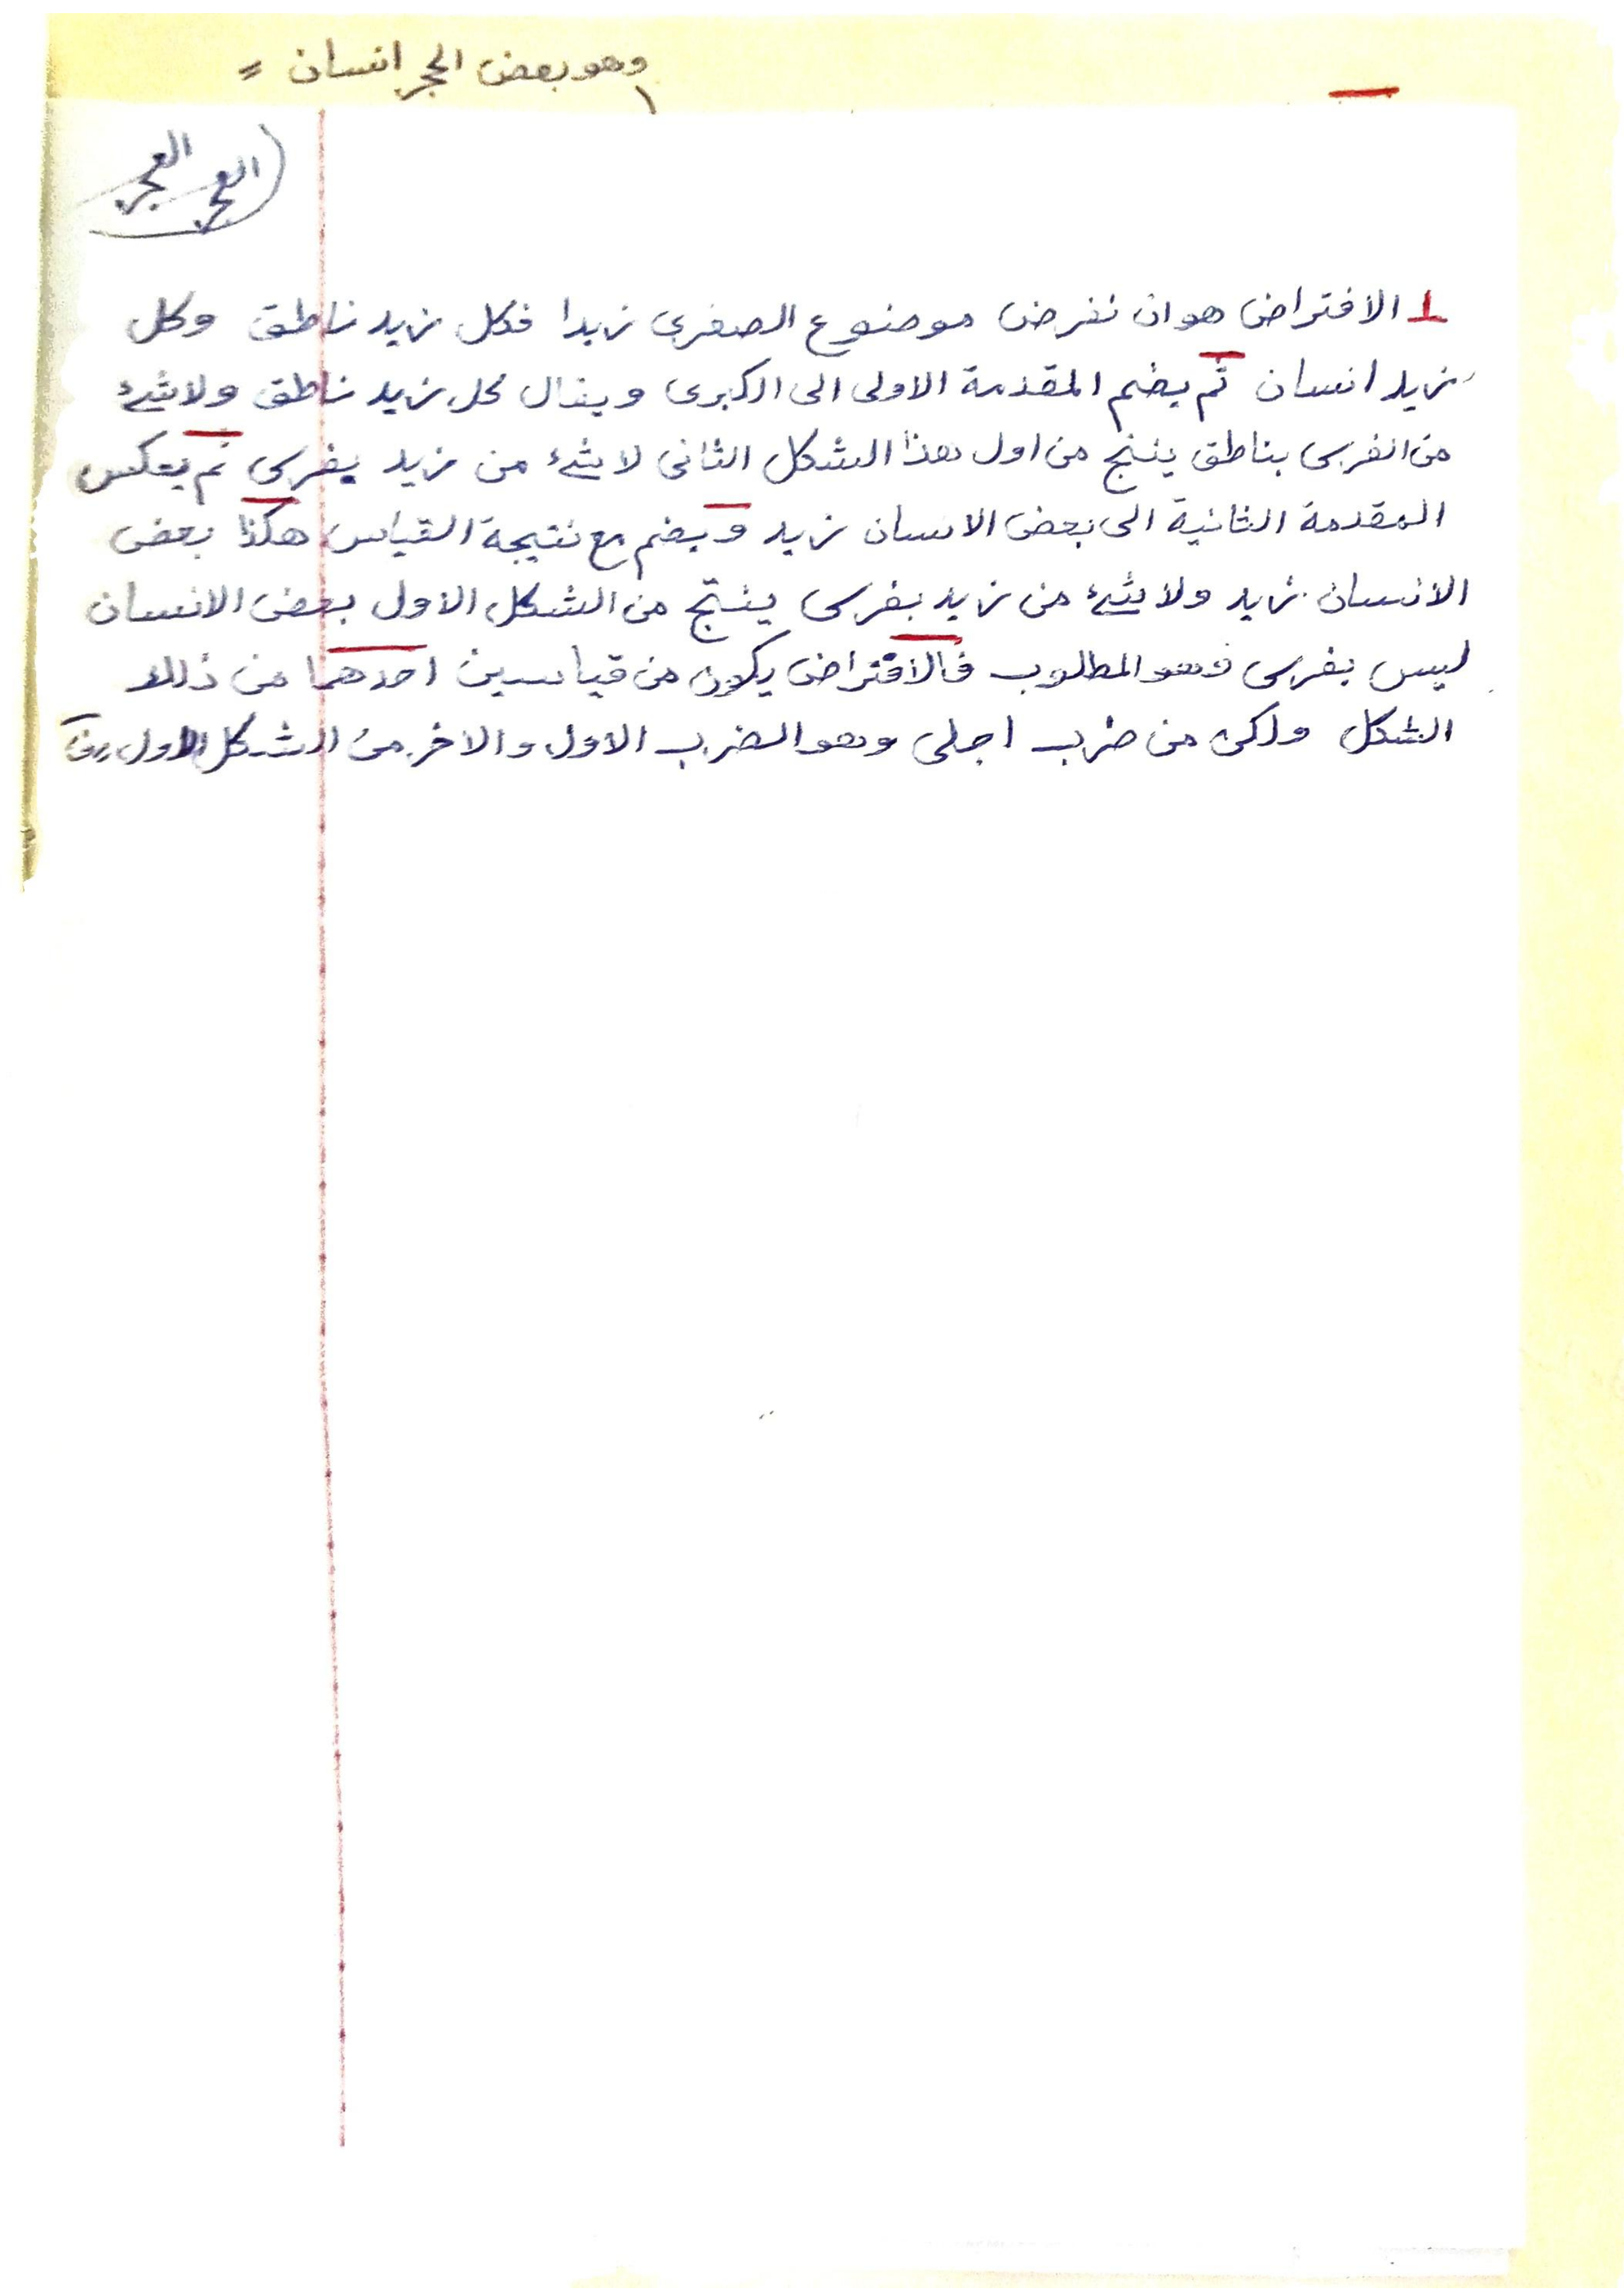 وهو بعض الحجر انسان
الافتراض هو ان نفرض موضوع الصغرى زيدا فكل زيد ناطق وكل
زيد انسان ثم يضم المقدمة الاولى الى الكبرى ويقال كل زيد ناطق ولا شئ
من الفرس بناطق ينتج من اول هذا الشكل الثانى لا شئ من زيد بفرس ثم يعكس
المقدمة الثانية الى بعض الانسان زيد ويضم مع نتيجة القياس هكذا بعض
الانسان زيد ولا شئ من زيد بفرس ينتج من الشكل الاول بعض الانسان
ليس بفرس وهو المطلوب فالافتراض يكون من قياسين احدهما من ذلك
الشكل ولكن من ضرب اجلى وهو الضرب الاول والاخر من الشكل الاول